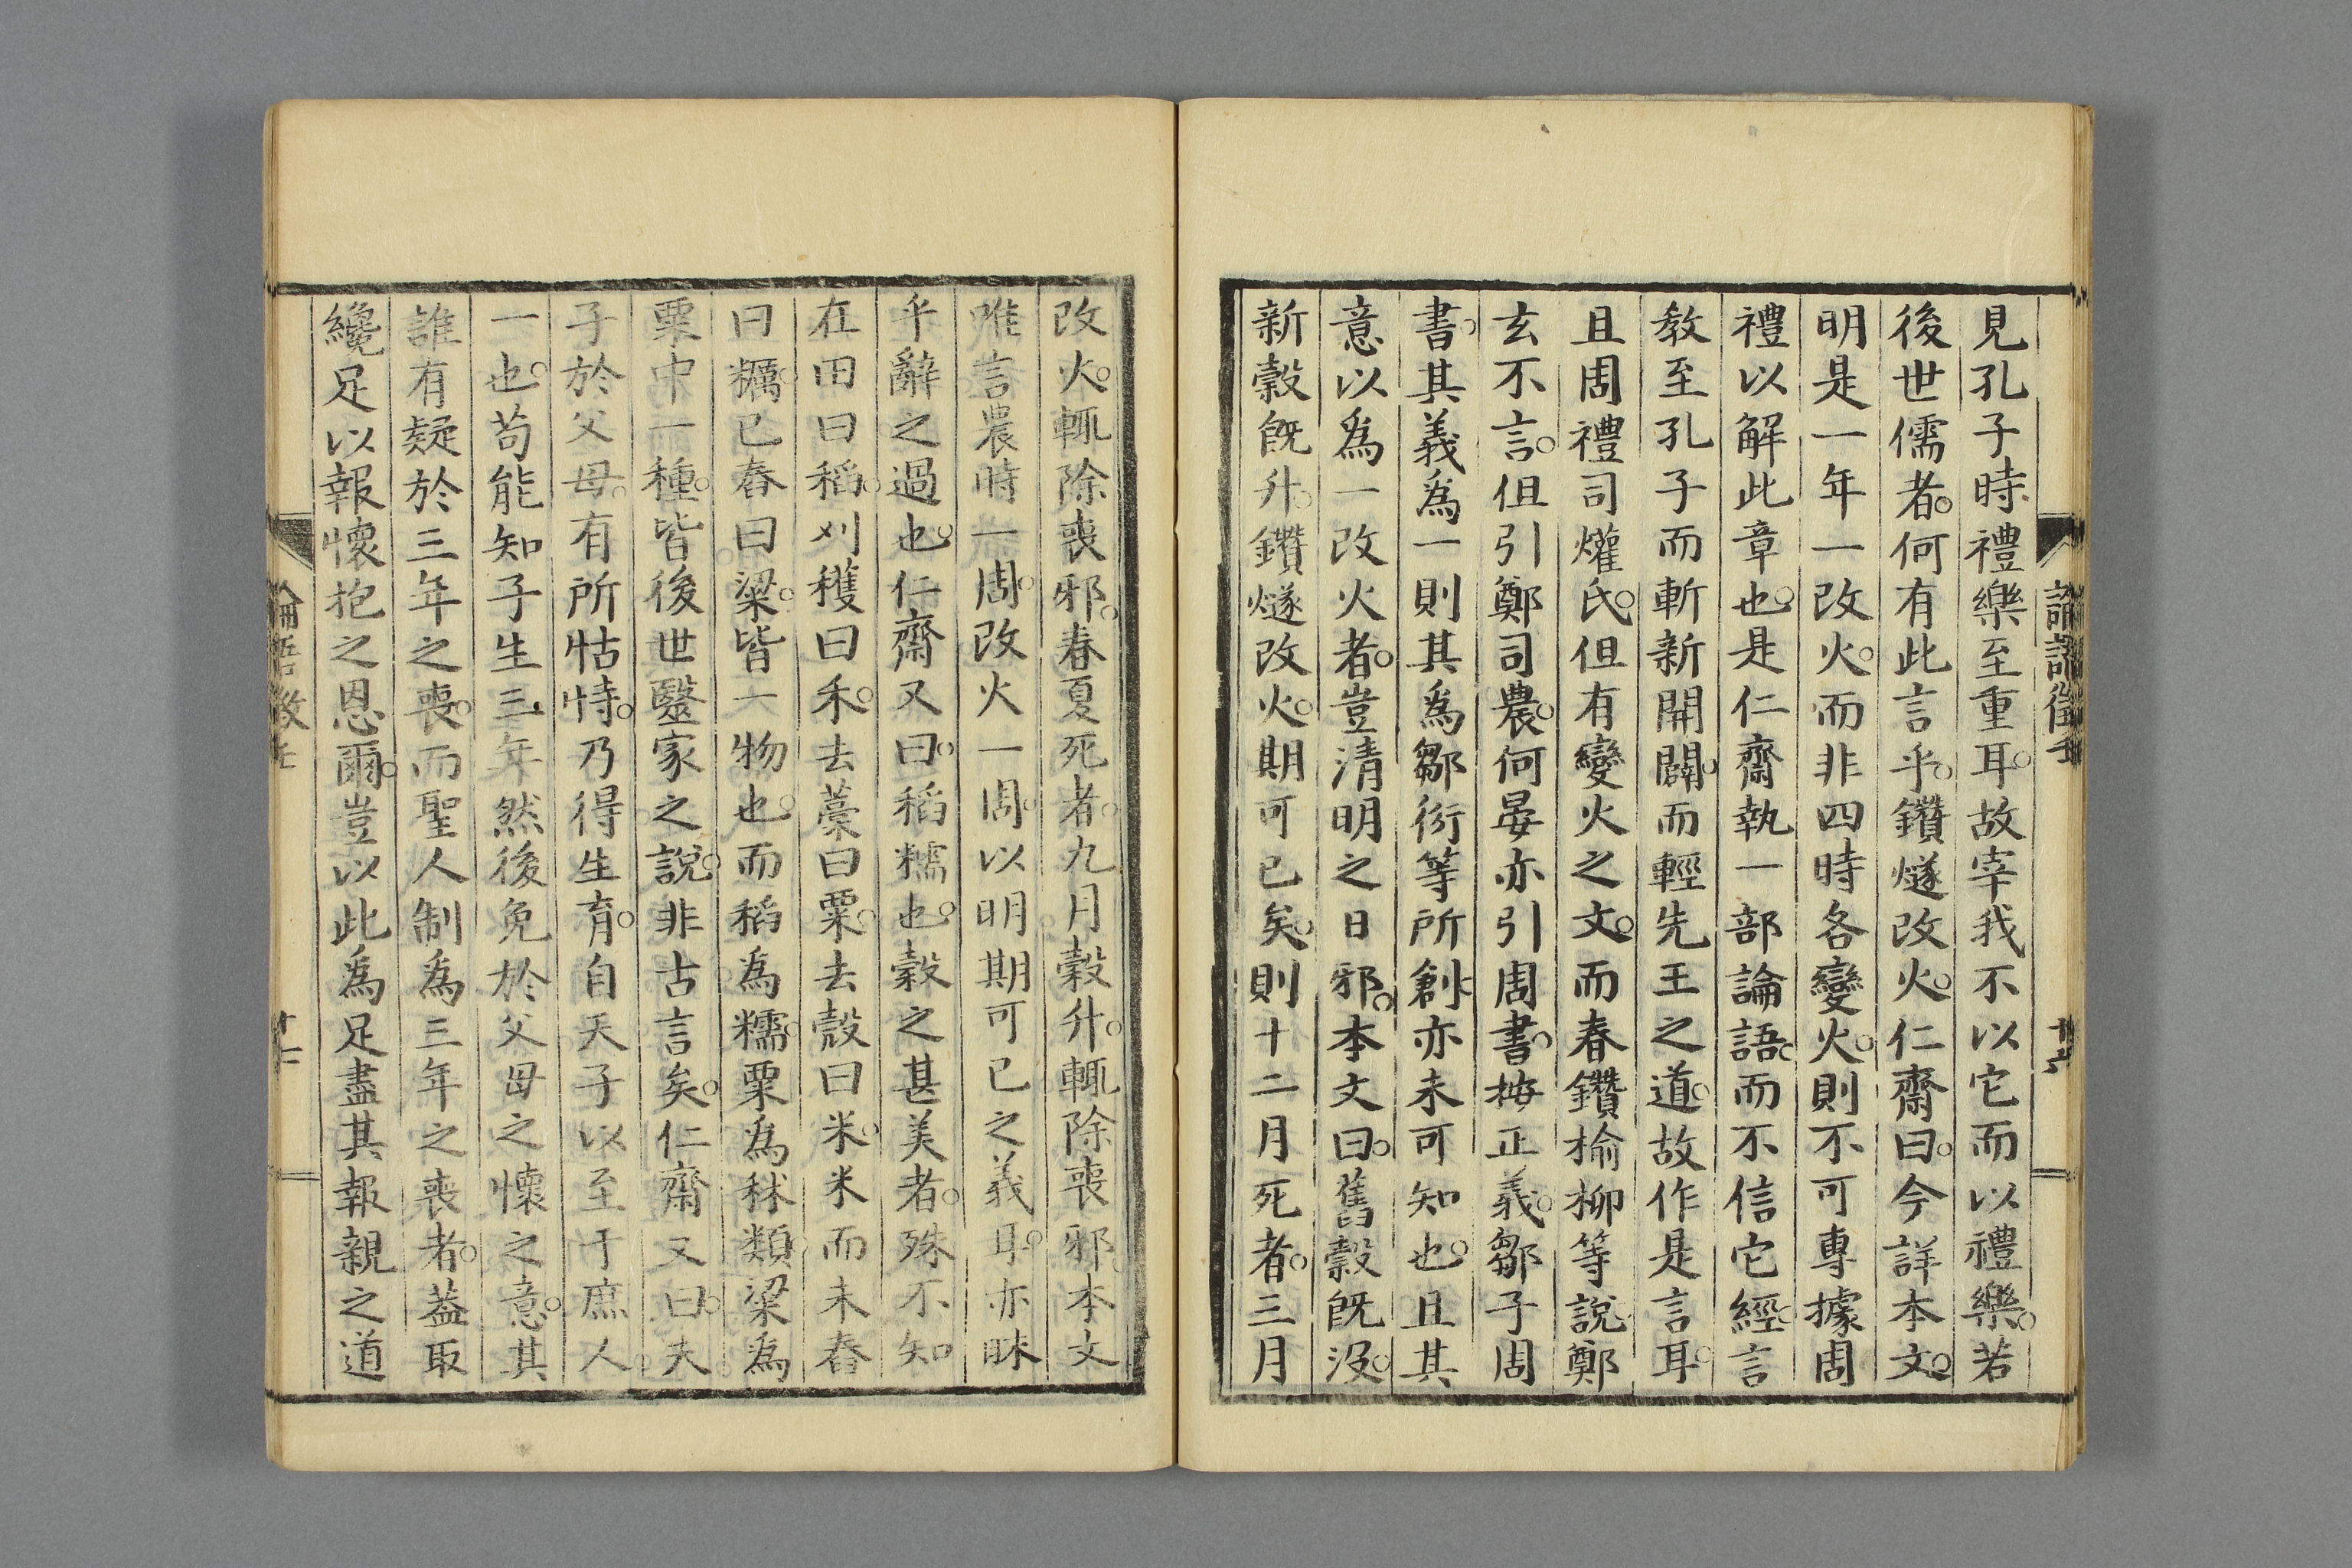 見孔子時禮樂至重耳。故宰我不以它而以禮樂。若
後世儒者。何有此言乎。鑽燧改火。仁齋曰。今詳本文。
明是一年一改火。而非四時各變火。則不可專據周
禮以解此章也。是仁齋執一部論語。而不信它經。言
教至孔子而斬新開闢。而輕先王之道。故作是言耳。
且周禮司爟氏。但有變火之文。而春鑽楡柳等說。鄭
玄不言。但引鄭司農。何晏亦引周書。按正義。鄒子周
書。其義爲一。則其爲鄒衍等所創。亦未可知也。且其
意以爲一改火者。豈清明之日邪。本文曰。舊穀既沒。
新穀既升。鑽燧改火。期可已矣。則十二月死者。三月
改火。輒除喪邪。春夏死者。九月穀升。輒除喪邪。本文
唯言農時一周。改火一周。以明期可已之義耳。亦昧
乎辭之過也。仁齋又曰。稻糯也。穀之甚美者。殊不知
在田曰稻。刈穫曰禾。去藁曰粟。去殼曰米。米而未舂
曰糲。已舂曰粱。皆一物也。而稻爲糯。粟爲秫類。粱爲
粟中一種。皆後世醫家之說。非古言矣。仁齋又曰。夫
子於父母。有所怙恃。乃得生育。自天子以至于庶人
一也。苟能知子生三年。然後免於父母之懷之意。其
誰有疑於三年之喪。而聖人制爲三年之喪者。葢取
纔足以報懷抱之恩爾。豈以此爲足盡其報親之道